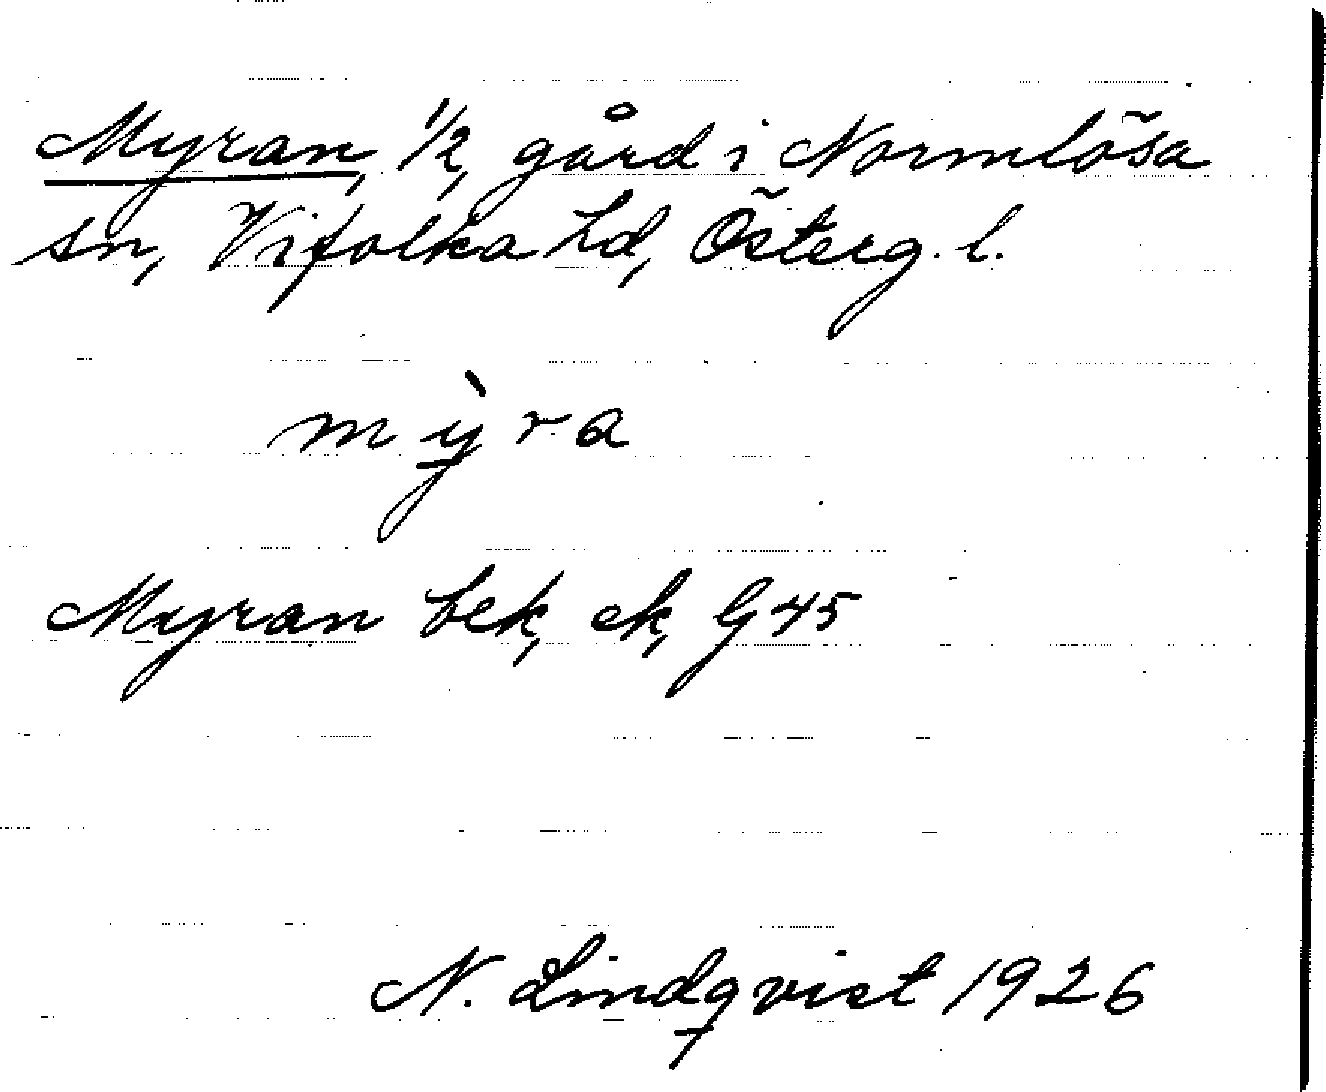 Myran, 1/2 gård i Normlösa
sn, Vifolka hd, Österg. l.
mỳra
Myran bek, ek, G 45
N. Lindqvist 1926